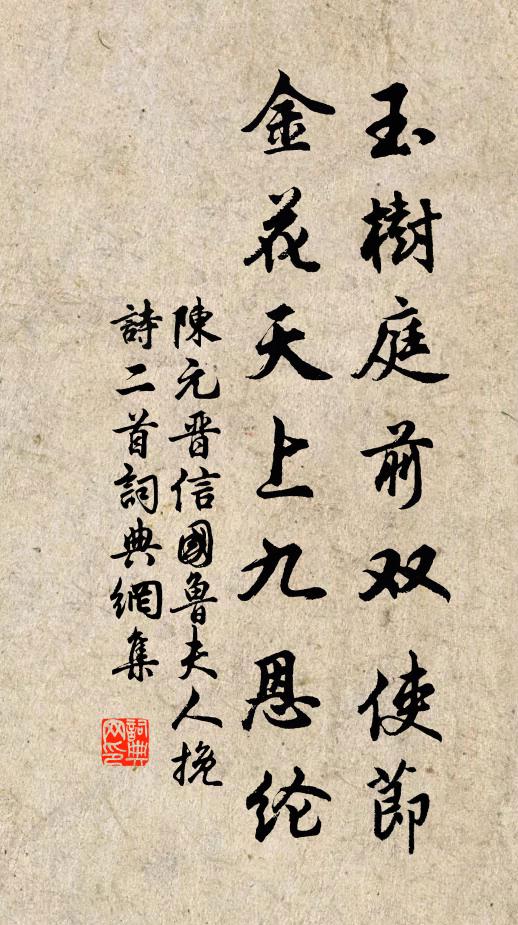 玉樹庭前双使節
金花天上九恩纶
陳元晋信國魯夫人挽
詩二首詞典網集
詞典网印